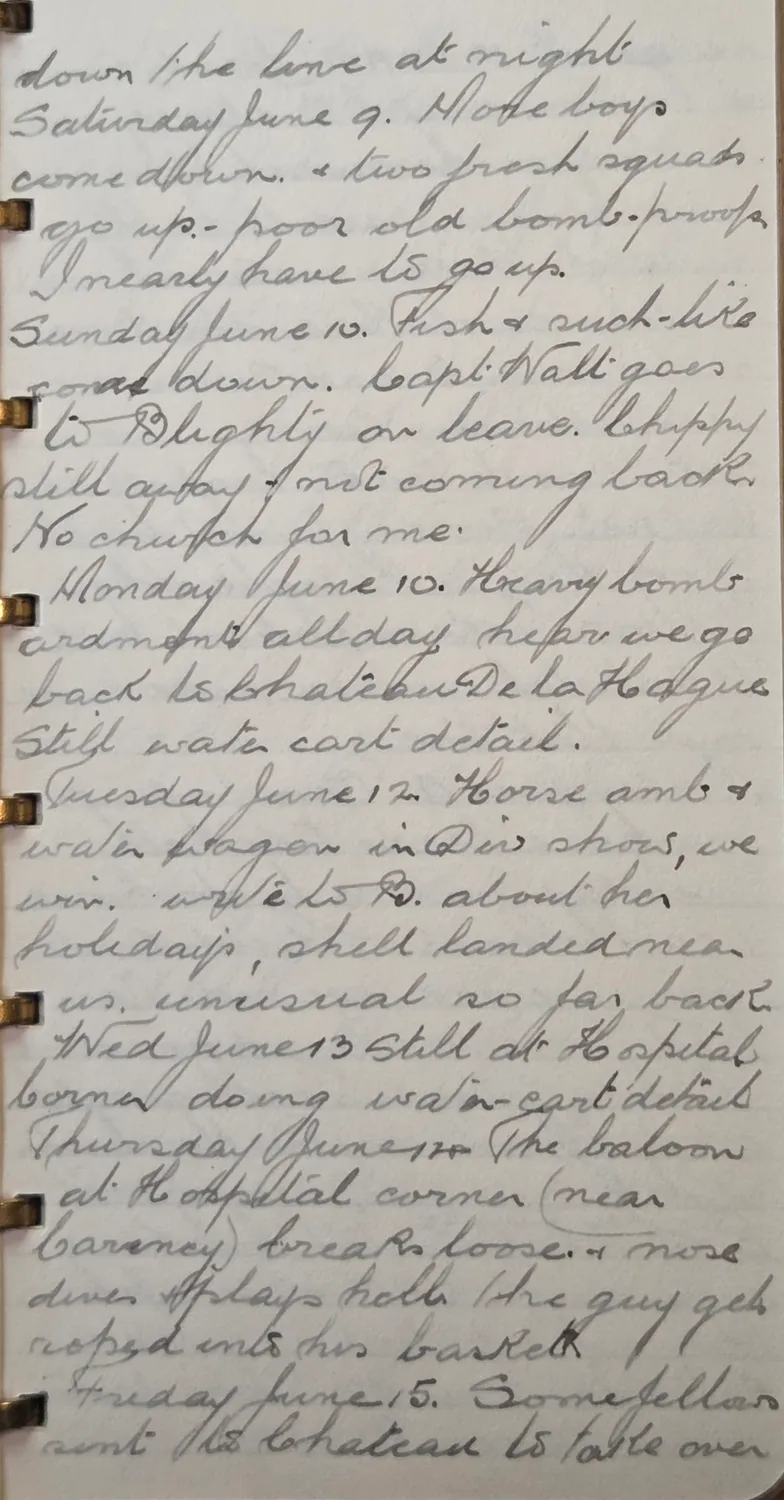 down the line at night
Saturday June 9. More boys
come down. & two fresh squads.
go up.- poor old bomb-proofs
I nearly have to go up.
Sunday June 10. Fish & such-like
come down. Capt. Walt goes
to Blighty on leave. Chippy
still away & not coming back.
No church for me.
Monday June 10. Heavy bomb
ardment all day hear we go
back to Chateau De la Hague
Still water cart detail.
Tuesday June 12. Horse amb &
water wagen in Div show, we
win. write to B. about her
holidays, shell landed near
us. unusual so far back.
Wed June 13 Still at Hospital
Corner doing water-cart detail
Thursday June The baloon
at Hospital corner (near
Carency) breaks loose. & nose
dives & plays hell the guy gets
roped into his basket
Friday June 15. Some fellows
sent to Chateau to take over